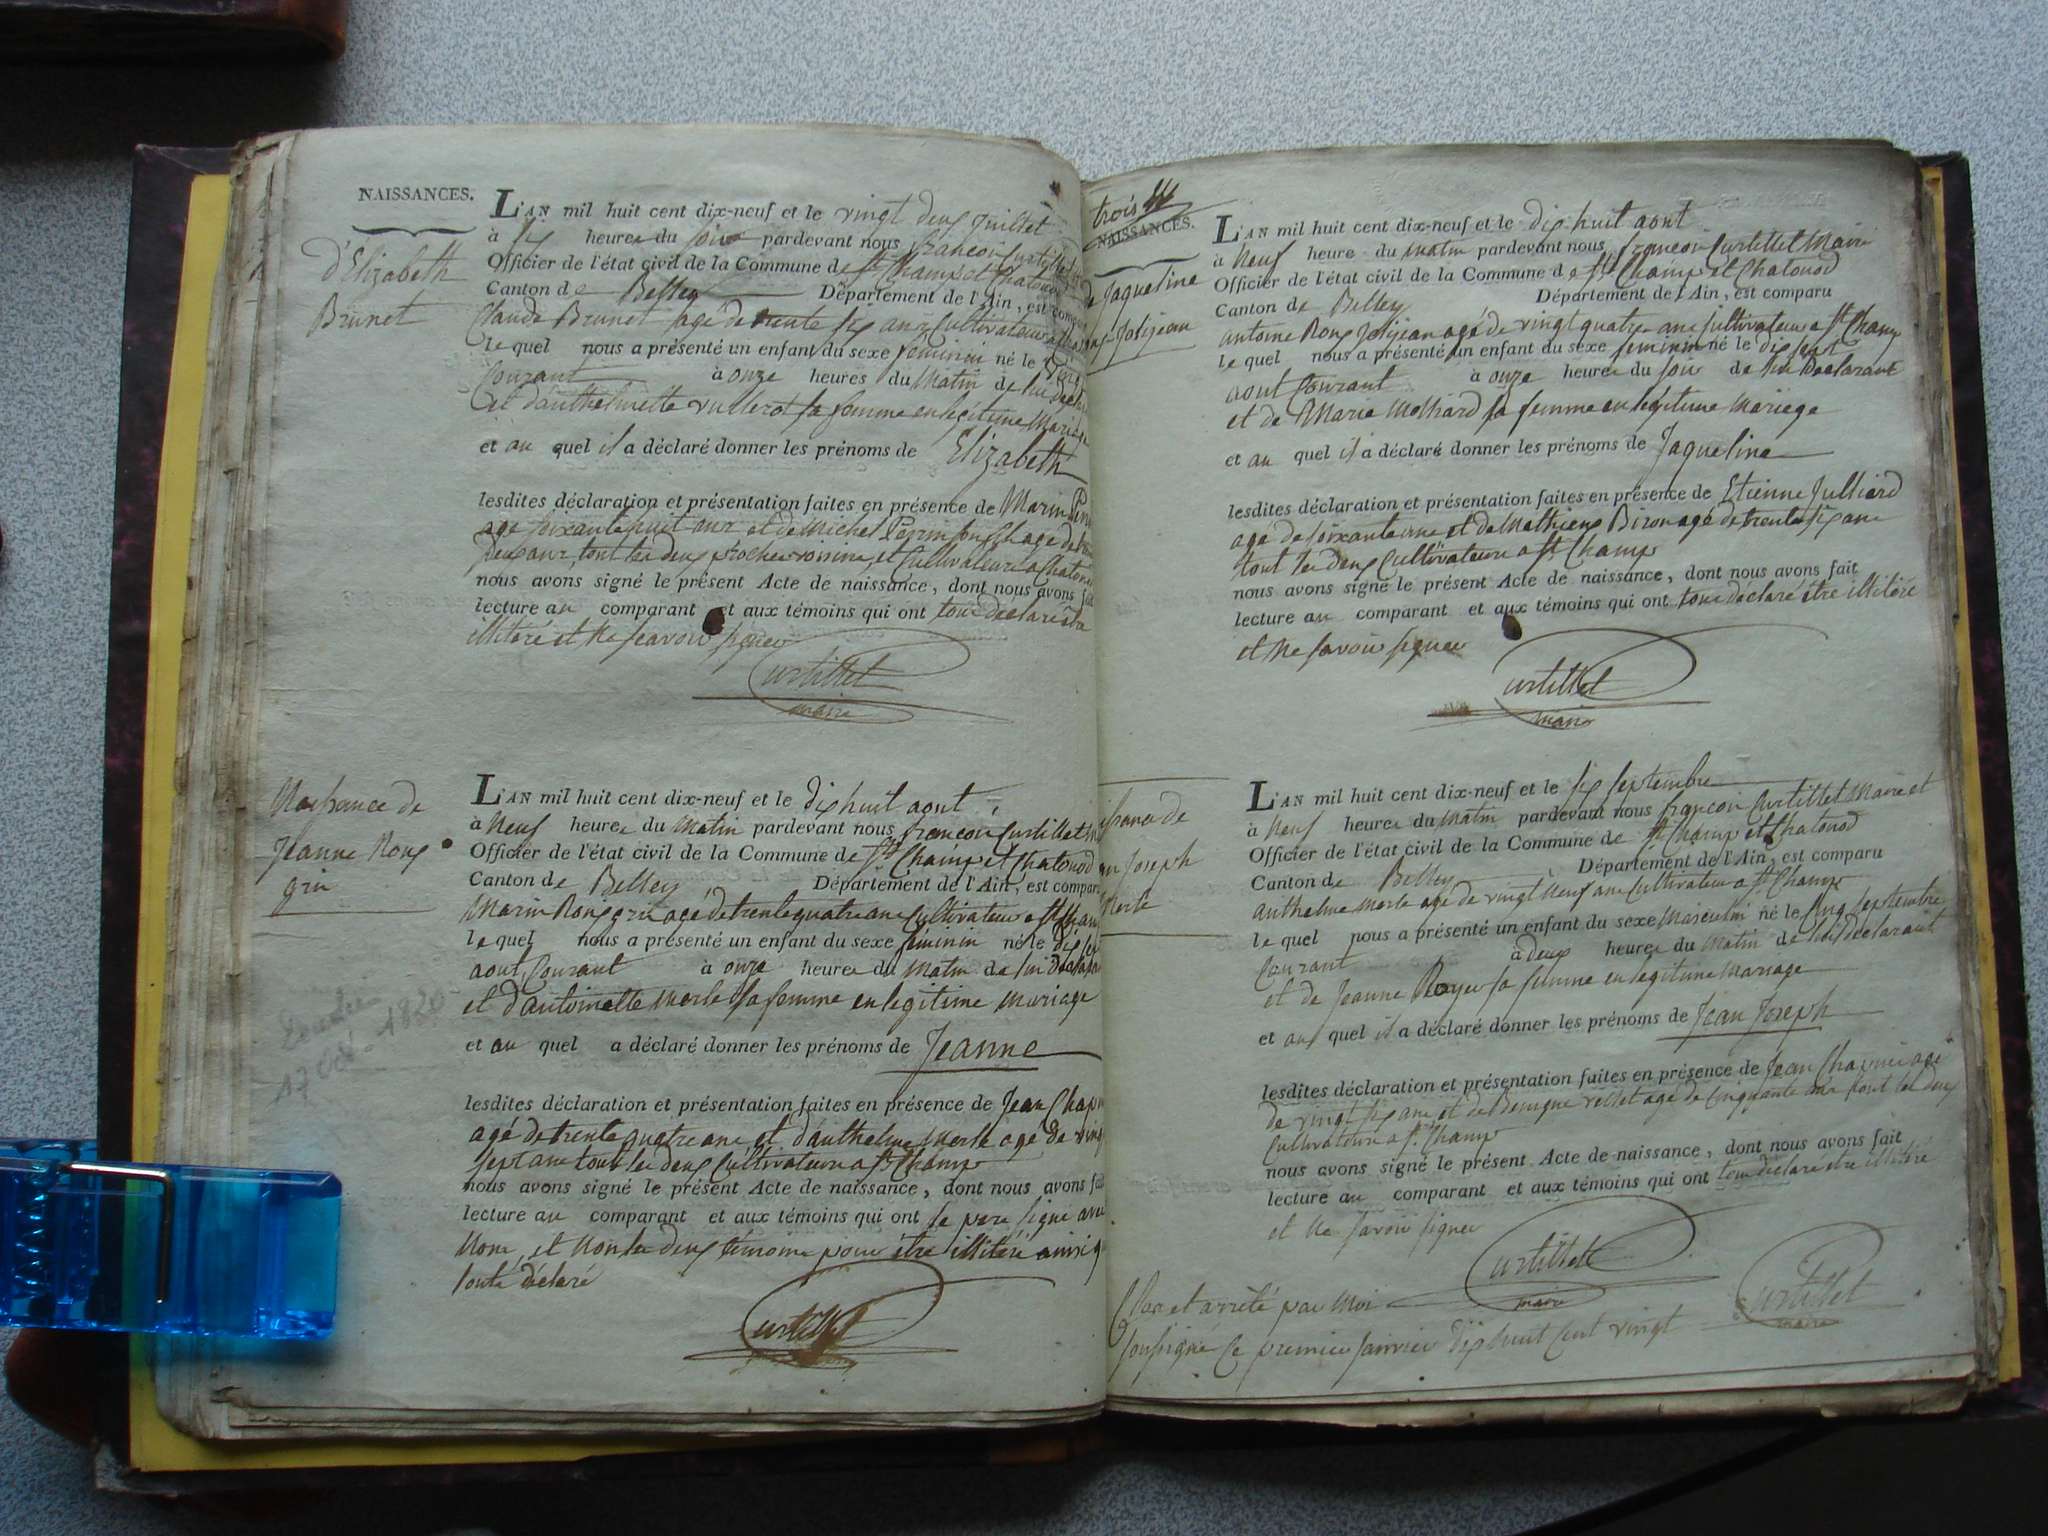 NAISSANCES.
D'Elizabeth
Brunet
L'AN mil huit cent dix-neuf et le vingt deux juillet
à six heures du soir pardevant nous françois Curtillet
Officier de l'état civil de la Commune de St Champ et Chatonod
Canton de Belley Département de l'Ain, est comparu
Claude Brunet agé de trente six ans Cultivateur a
le quel nous a présenté un enfant du sexe feminin né le
Courant à onze heures du Matin de lui
et d'anthelmette vullerot sa femme en legitime Mariage
et au quel il a déclaré donner les prénoms de Elizabeth
lesdites déclaration et présentation faites en présence de Marin
agé soixante huit ans et de Michel Peyrin son fils agé de
deux ans, tout les deux proches voisins, et Cultivateurs a Chatonod
nous avons signé le présent Acte de naissance, dont nous avons fait
lecture au comparant et aux témoins qui ont tous declaré être
illitéré et ne scavoir signer
Curtillet
maire
Naissance de
Jeanne Roux
grin
17 1820
L'AN mil huit cent dix-neuf et le dix huit aout
à Neuf heures du Matin pardevant nous françois Curtillet
Officier de l'état civil de la Commune de St Champ et Chatonod
Canton de Belley Département de l'Ain, est comparu
Marin Roux grin agé de trente quatre ans Cultivateur a St Champ
le quel nous a présenté un enfant du sexe féminin né le dix sept
aout Courant à onze heures du Matin de lui déclarant
et d'antoinette Merle sa femme en legitime mariage
et au quel a déclaré donner les prénoms de Jeanne
lesdites déclaration et présentation faites en présence de Jean
agé de trente quatre ans et d'anthelme Merle agé de vingt
sept ans tout les deux Cultivateurs a St Champ
nous avons signé le présent Acte de naissance, dont nous avons fait
lecture au comparant et aux témoins qui ont le pere signé avec
Nous, et Non les deux témoins pour être illitéré ainsi
lont déclaré
Curtillet
trois
NAISSANCES.
de Jaqueline
Roux-Jolijean
L'AN mil huit cent dix-neuf et le dix huit aout
à Neuf heure du matin pardevant nous françois Curtillet Maire
Officier de l'état civil de la Commune de St Champ et Chatonod
Canton de Belley Département de l'Ain, est comparu
antoine Roux Jolijean agé de vingt quatre ans Cultivateur a St Champ
le quel nous a présenté un enfant du sexe feminin né le dix sept
aout Courant à onze heures du soir de lui Declarant
et de Marie Molliard sa femme en legitime Mariege
et au quel il a déclaré donner les prénoms de Jaqueline
lesdites déclaration et présentation faites en présence de Etienne Julliard
agé de soixante ans et de Mathieu Bizon agé de trente six ans
tout les deux Cultivateurs a St Champ
nous avons signé le présent Acte de naissance, dont nous avons fait
lecture au comparant et aux témoins qui ont tous declaré être illitéré
et ne savoir signer
Curtillet
maire
Naissance de
Jean Joseph
Merle
L'AN mil huit cent dix-neuf et le six septembre
à Neuf heures du Matin pardevant nous françois Curtillet Maire et
Officier de l'état civil de la Commune de St Champ et Chatonod
Canton de Belley Département de l'Ain, est comparu
anthelme Merle agé de vingt Neuf ans Cultivateur a St Champ
le quel nous a présenté un enfant du sexe Masculin né le Cinq Septembre
Courant à deux heures du Matin de lui declarant
et de Jeanne Royer sa femme en legitime Mariage
et au quel il a déclaré donner les prénoms de Jean Joseph
lesdites déclaration et présentation faites en présence de Jean agé
de vingt six ans et de Benigne vellet agé de Cinquante ans tout les deux
Cultivateurs a St Champ
nous avons signé le présent Acte de naissance, dont nous avons fait
lecture au comparant et aux témoins qui ont tous déclaré être illitéré
et Ne savoir signer
Curtillet
maire
Clos et arrêté par Moi
soussigné Ce premier janvier dix huit Cent vingt
Curtillet
maire